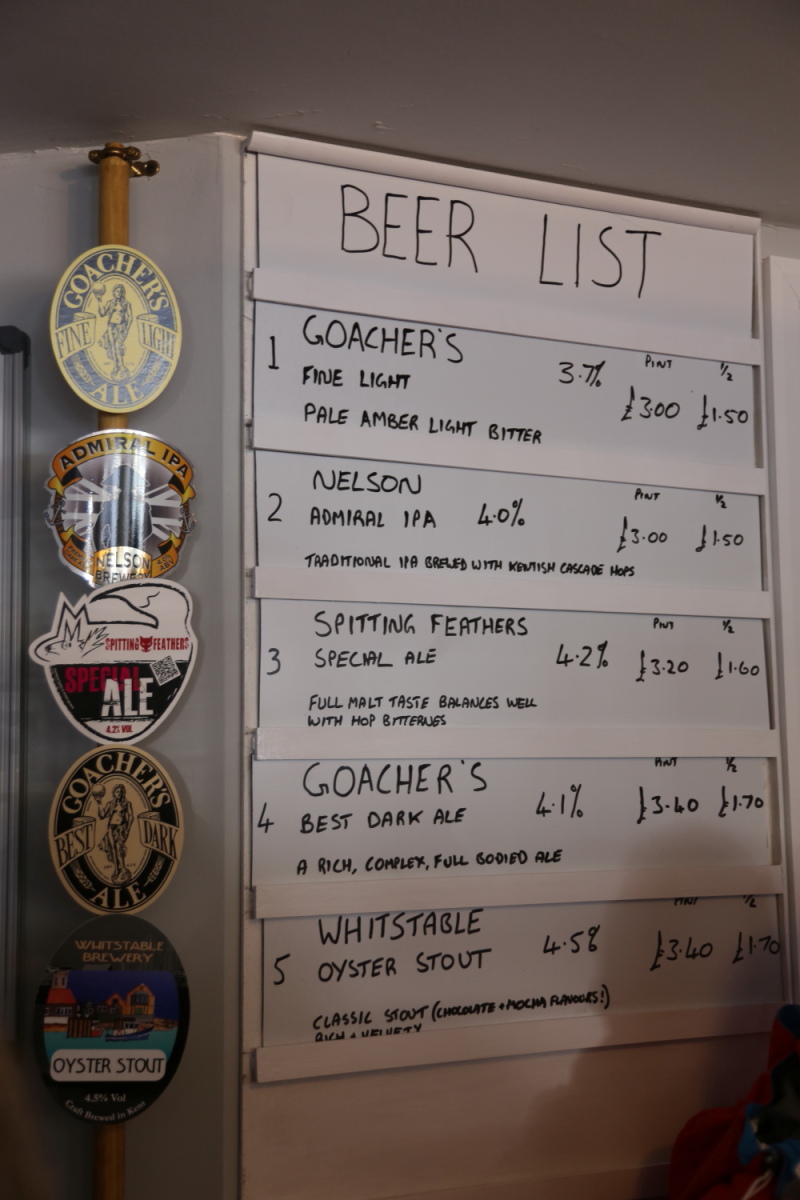 BEER LIST
1 GOACHER'S
FINE LIGHT 3.7% PINT 1/2
£3.00 £1.50
PALE AMBER LIGHT BITTER
2 NELSON PINT 1/2
ADMIRAL IPA 4.0% £3.00 £1.50
TRADITIONAL IPA BREWED WITH KENTISH CASCADE HOPS
3 SPITTING FEATHERS PINT 1/2
SPECIAL ALE 4.2% £3.20 £1.60
FULL MALT TASTE BALANCES WELL
WITH HOP BITTERNES
4 GOACHER'S PINT 1/2
BEST DARK ALE 4.1% £3.40 £1.70
A RICH, COMPLEX, FULL BODIED ALE
5 WHITSTABLE PINT 1/2
OYSTER STOUT 4.5% £3.40 £1.70
CLASSIC STOUT (CHOCOLATE + MOCHA FLAVOURS!)
RICH + VELVETY
GOACHER'S
FINE LIGHT
ALE
ADMIRAL IPA
NELSON
BREWERY
SPITTING FEATHERS
SPECIAL
ALE
4.2% VOL
GOACHER'S
BEST DARK
ALE
WHITSTABLE
BREWERY
OYSTER STOUT
4.5% Vol
Craft Brewed in Kent